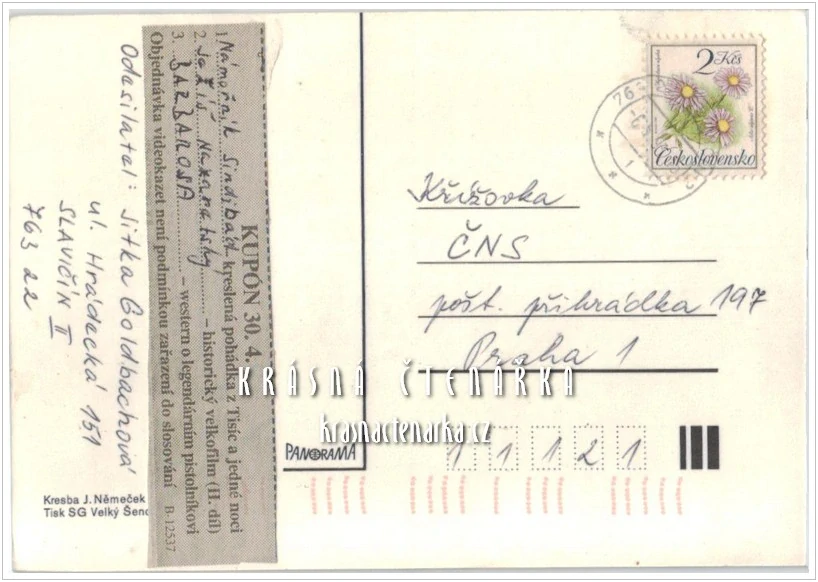 Odesilatel: Jitka Goldbachová
ul. Hrádecká 151
SLAVIČÍN II
763 22
KUPÓN 30. 4.
1. Námořník Sindibád – kreslená pohádka z Tisíc a jedné noci
2. Ježíš Nazaratský – historický velkofilm (II. díl)
3. BARBAROSA – western o legendárním pistolníkovi
Objednávka videokazet není podmínkou zařazení do slosování B-12537
2 Kčs
Československo
Křížovka
ČNS
pošt. přihrádka 197
Praha 1
KRÁSNÁ ČTENÁRKA
krasnactenarka.cz
PANORAMA
1 1 1 2 1
Kresba J. Němeček
Tisk SG Velký Šeno